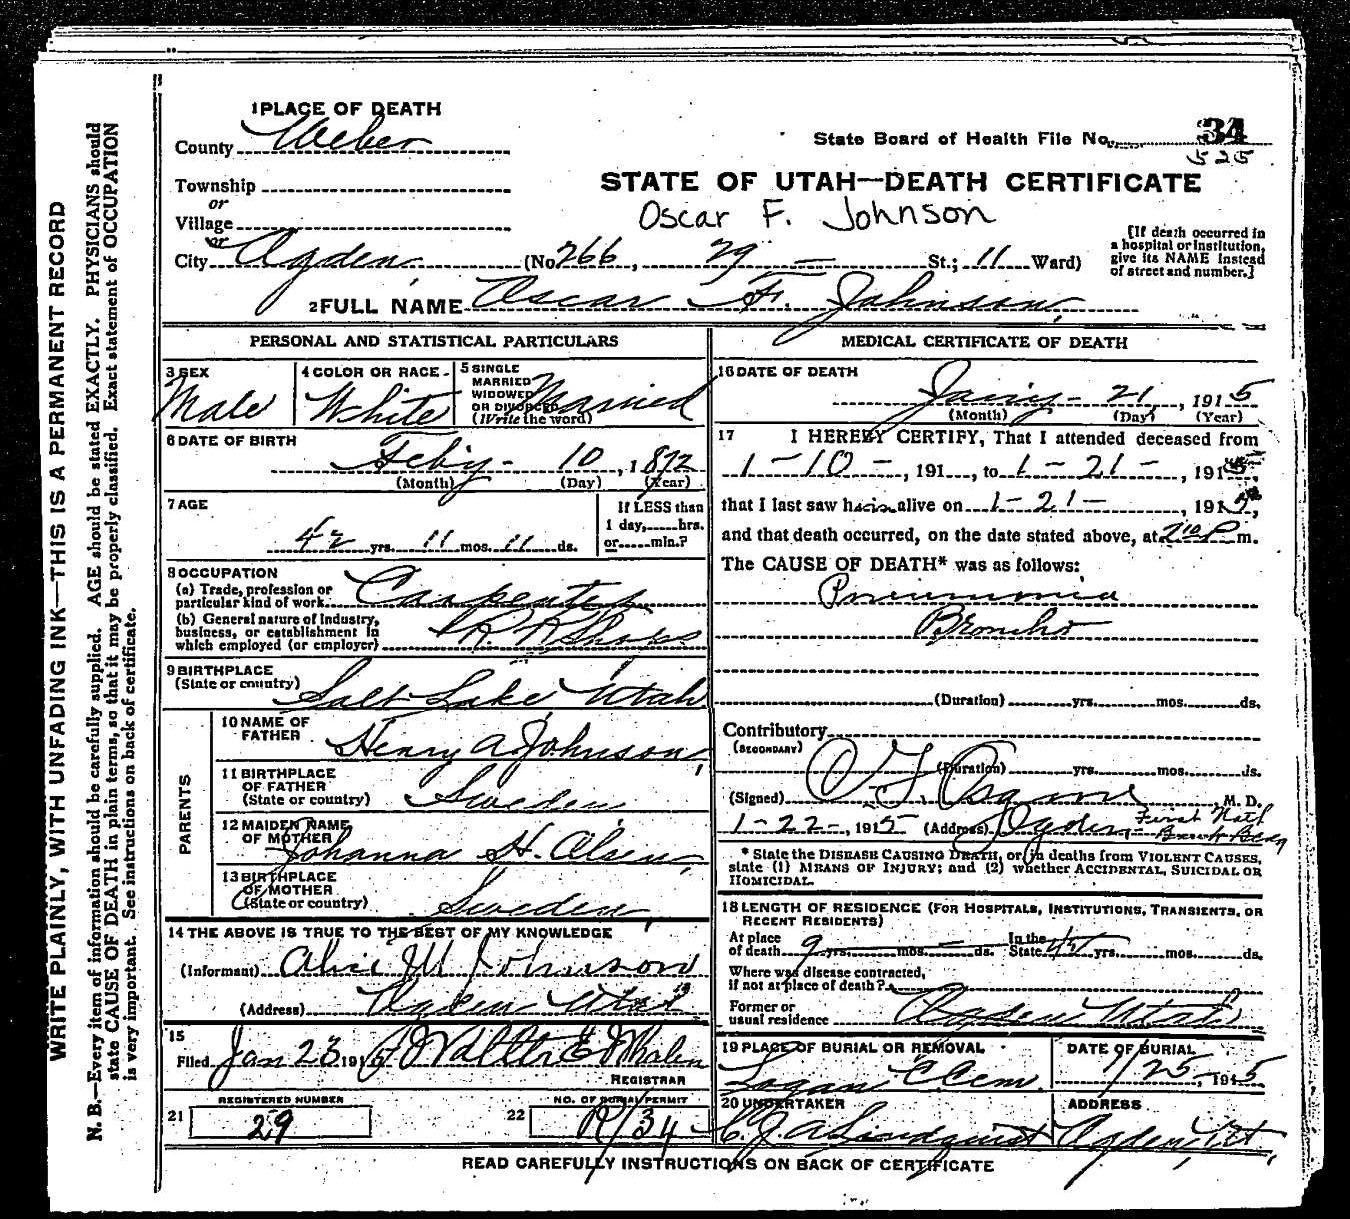 WRITE PLAINLY, WITH UNFADING INK—THIS IS A PERMANENT RECORD
N. B.—Every item of information should be carefully supplied. AGE should be stated EXACTLY. PHYSICIANS should
state CAUSE OF DEATH in plain terms, so that it may be properly classified. Exact statement of OCCUPATION
is very important. See instructions on back of certificate.
1 PLACE OF DEATH
County Weber
State Board of Health File No. 34
525
Township
or
Village
or
STATE OF UTAH—DEATH CERTIFICATE
Oscar F. Johnson
City Ogden (No 266, 29 — St.; 11 Ward)
[If death occurred in
a hospital or institution,
give its NAME instead
of street and number.]
2 FULL NAME Oscar F. Johnson
PERSONAL AND STATISTICAL PARTICULARS
3 SEX
Male
4 COLOR OR RACE
White
5 SINGLE
MARRIED
WIDOWED
OR DIVORCED
(Write the word)
Married
6 DATE OF BIRTH
Feby - 10, 1872
(Month) (Day) (Year)
7 AGE
42 yrs. 11 mos. 11 ds.
If LESS than
1 day, hrs.
or min.?
8 OCCUPATION
(a) Trade, profession or
particular kind of work Carpenter
(b) General nature of Industry,
business, or establishment in
which employed (or employer) R. R. Shops
9 BIRTHPLACE
(State or country) Salt Lake Utah
PARENTS
10 NAME OF
FATHER Henry A Johnson
11 BIRTHPLACE
OF FATHER
(State or country) Sweden
12 MAIDEN NAME
OF MOTHER Johanna H. Olsen
13 BIRTHPLACE
OF MOTHER
(State or country) Sweden
14 THE ABOVE IS TRUE TO THE BEST OF MY KNOWLEDGE
(Informant) Alice M Johnson
(Address) Ogden Utah
15
Filed Jan 23 191 Walter E Whalen
REGISTRAR
21 REGISTERED NUMBER
29
22 NO. OF BURIAL PERMIT
/34
MEDICAL CERTIFICATE OF DEATH
16 DATE OF DEATH
Jany - 21, 1915
(Month) (Day) (Year)
17 I HEREBY CERTIFY, That I attended deceased from
1-10-, 191, to 1-21-, 1915,
that I last saw him alive on 1-21-, 1915,
and that death occurred, on the date stated above, at 2 P m.
The CAUSE OF DEATH* was as follows:
Pneumonia
Broncho
(Duration) yrs. mos. ds.
Contributory
(SECONDARY)
(Duration) yrs. mos. ds.
(Signed) M. D.
1-22-, 1915 (Address) Ogden First Natl
Bank
* State the DISEASE CAUSING DEATH, or in deaths from VIOLENT CAUSES,
state (1) MEANS OF INJURY; and (2) whether ACCIDENTAL, SUICIDAL OR
HOMICIDAL.
18 LENGTH OF RESIDENCE (FOR HOSPITALS, INSTITUTIONS, TRANSIENTS, OR
RECENT RESIDENTS)
At place
of death 9 yrs. mos. ds. In the
State yrs. mos. ds.
Where was disease contracted,
if not at place of death?
Former or
usual residence Ogden Utah
19 PLACE OF BURIAL OR REMOVAL
Logan C Cem.
DATE OF BURIAL
1/25, 1915
20 UNDERTAKER
C. J. A Lindquist
ADDRESS
Ogden, Ut.
READ CAREFULLY INSTRUCTIONS ON BACK OF CERTIFICATE